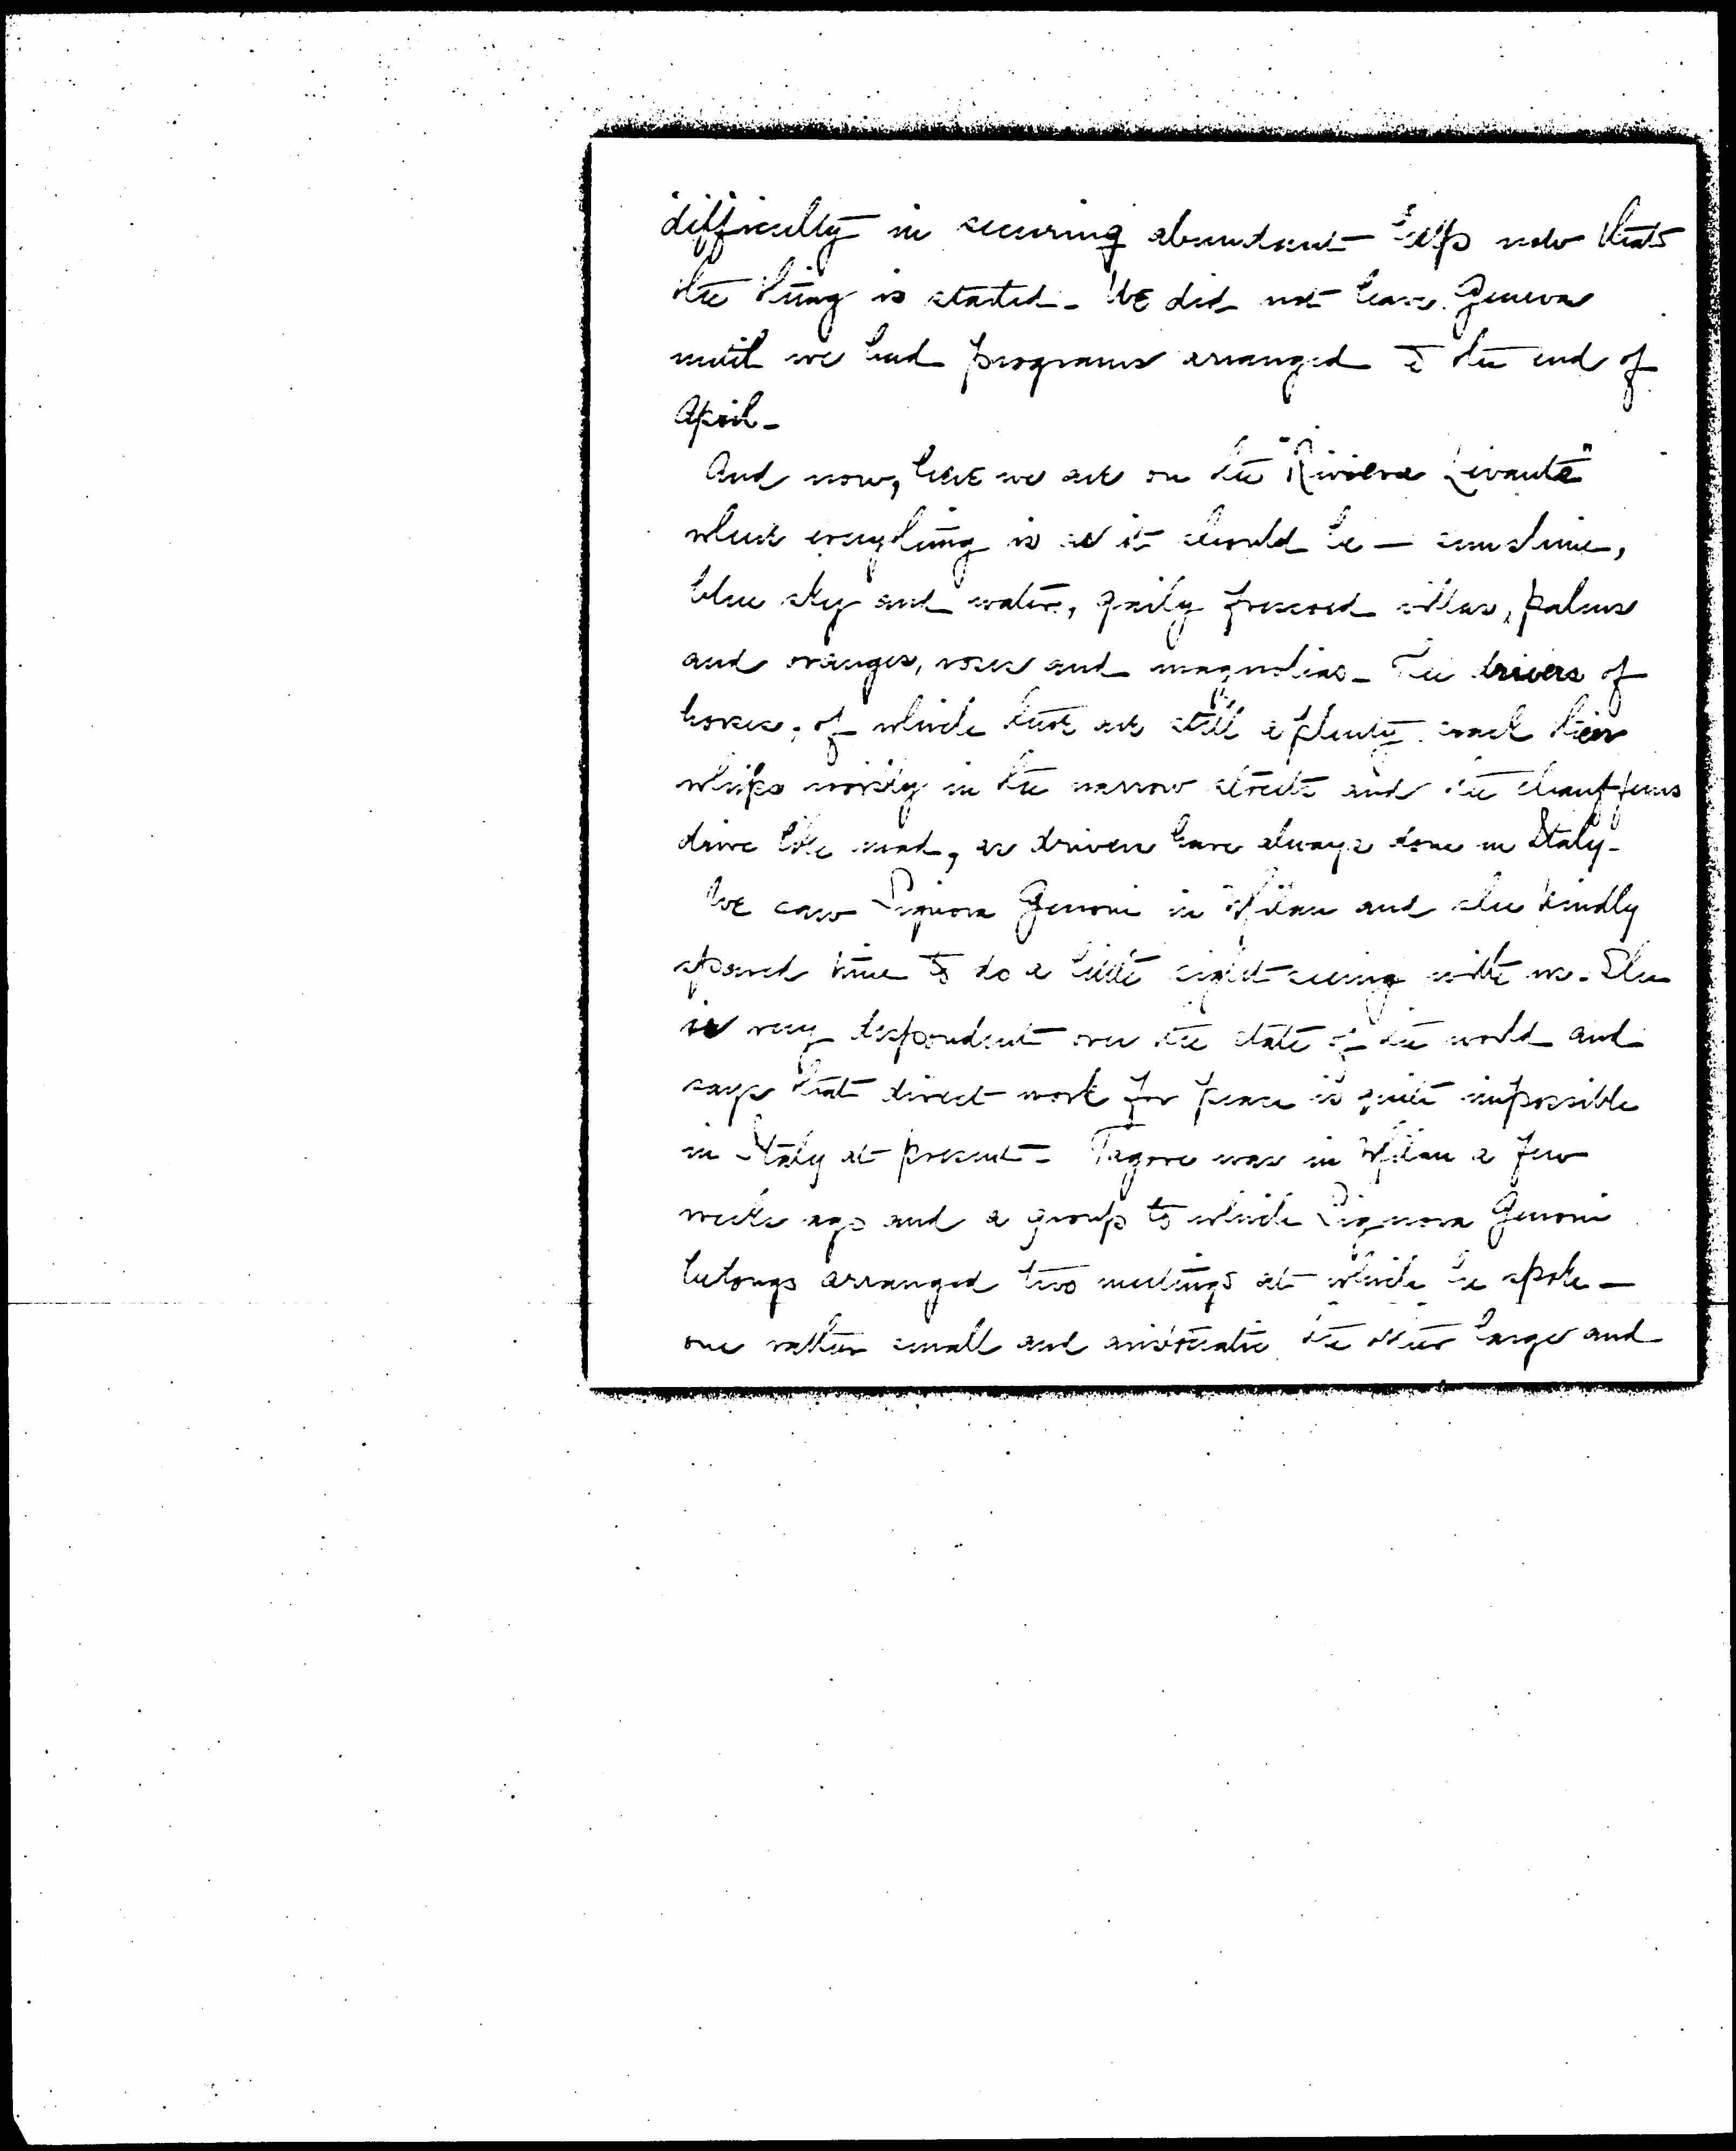 difficulty in securing abundant help now that
the thing is started - We did not leave Geneva
until we had programs arranged to the end of
April -
And now, here we are on the "Riviera Levante"
where everything is as it should be - sunshine,
blue sky and water, gaily frescoed villas, palms
and oranges, roses and magnolias - The drivers of
horses, of which there are still a plenty crack their
whips noisily in the narrow streets and the chauffeurs
drive like mad, as drivers have always done in Italy -
We saw Signora Genoni in Milan and she kindly
spared time to do a little sight-seeing with us. She
is very despondent over the state of the world and
says that direct work for peace is quite impossible
in Italy at present - Tagore was in Milan a few
weeks ago and a group to which Signora Genoni
belongs arranged two meetings at which he spoke -
one rather small and aristocratic the other large and